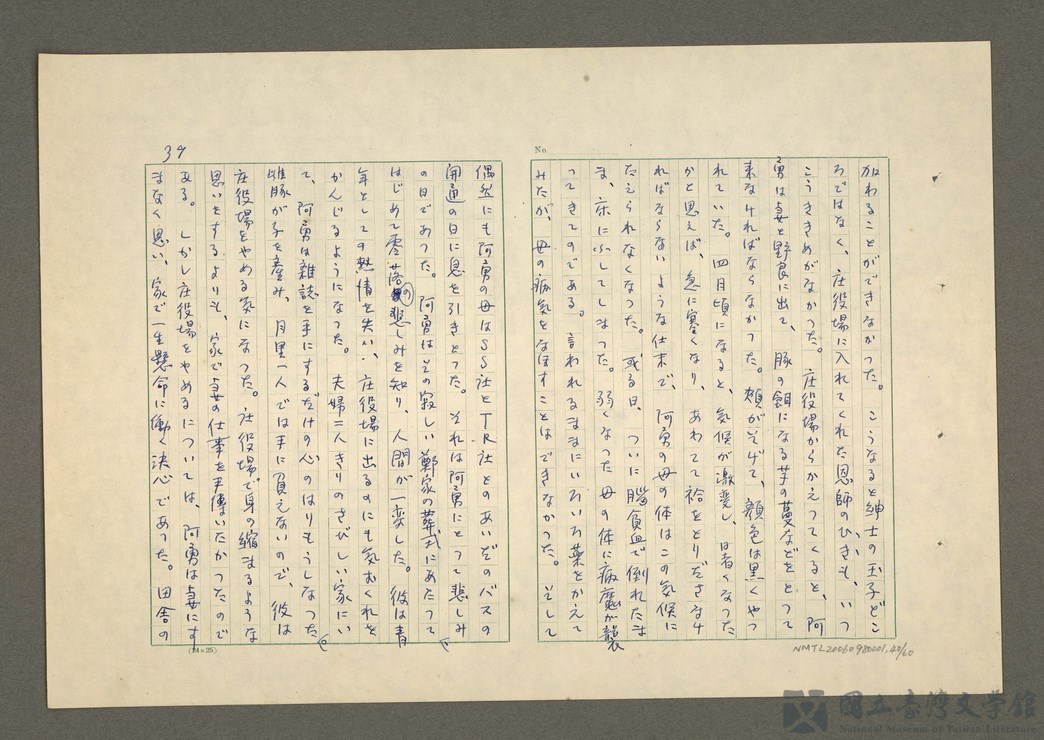 No.
加わることができなかった。こうなると紳士の玉子どこ
ろではなく、庄役場に入れてくれた恩師のひきも、いつ
こうききめがなかった。庄役場からかえってくると、阿
勇は妻と野良に出て、豚の餌になる芋の蔓などをとって
来なければならなかった。頬がそげて、顔色は黒くやつ
れていた。四月頃になると、気候が激変し、暑くなった
かと思えば、急に寒くなり、あわてて袷をとりださなけ
ればならないような仕末で、阿勇の母の体はこの気候に
たえられなくなった。或る日、ついに脳貧血で倒れたま
ま、床にふしてしまった。弱くなった母の体に病魔が襲
ってきてのである。言われるままにいろいろ薬をかえて
みたが、母の病気をなほすことはできなかった。そして
偶然にも阿勇の母はSS社とTR社とのあいだのバスの
開通の日に息を引きとった。それは阿勇にとって悲しみ
の日であった。阿勇はその寂しい鄭家の葬式にあたって、
はじめて零落の悲しみを知り、人間が一変した。彼は青
年としての熱情を失い、庄役場に出るのにも気おくれを
かんじるようになった。夫婦二人きりのさびしい家にい
て、阿勇は雑誌を手にするだけの心のはりもうしなった。
雌豚が子を産み、月里一人では手に負えないので、彼は
庄役場をやめる気になった。庄役場で身の縮まるような
思いをするよりも、家で妻の仕事を手傳いたかったので
ある。しかし庄役場をやめるについては、阿勇は妻にす
まなく思い、家で一生懸命に働く決心であった。田舎の
39
(24×25)
NMTL20060980001.40/60
國立臺灣文學館
National Museum of Taiwan Literature